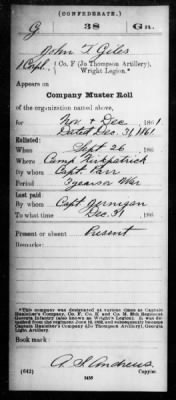 (CONFEDERATE.)
G 38 Gn.
John T. Giles
1 Corpl., Co. F (Jo Thompson Artillery), Wright Legion.*
Appears on
Company Muster Roll
of the organization named above,
for Nov & Dec, 1861
Dated Dec. 31, 1861
Enlisted:
When Sept 26, 186
Where Camp Kirkpatrick
By whom Capt. Parr
Period 3 years or War
Last paid:
By whom Capt Jernigan
To what time Dec. 31, 186
Present or absent Present
Remarks:
*This company was designated at various times as Captain
Hanleiter's Company, Co. F, Co. E, and Co. M, 38th Regiment
Georgia Infantry (also known as Wright's Legion). It was de-
tached from the regiment and subsequently became
Captain Hanleiter's Company (Jo Thompson Artillery), Georgia
Light Artillery.
Book mark:
A. S. Andrews
(642) Copyist.